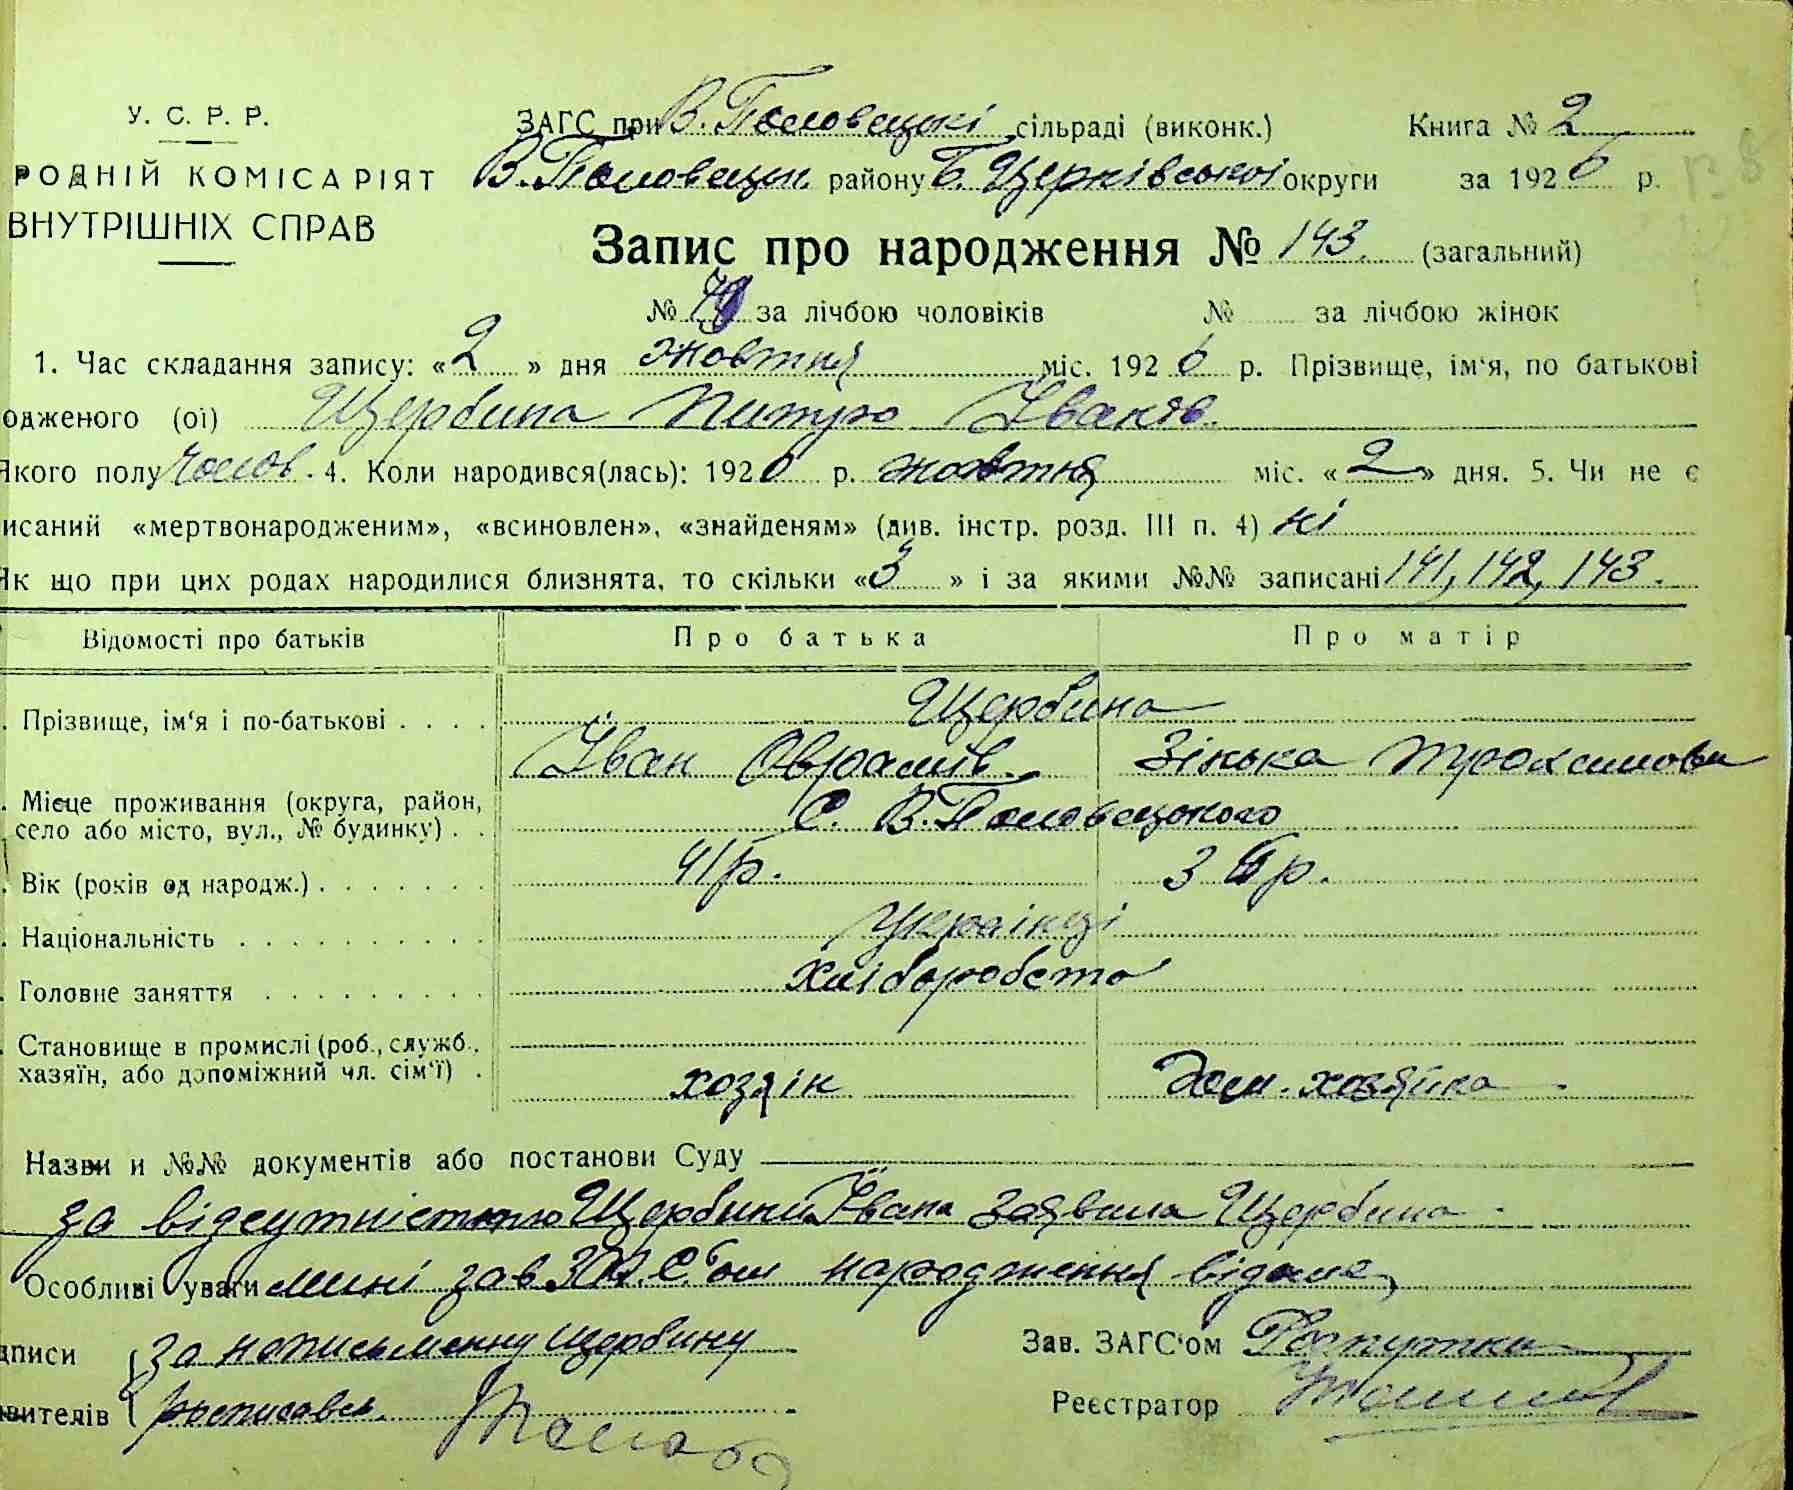 У. С. Р. Р.
РОДНІЙ КОМІСАРІЯТ
ВНУТРІШНІХ СПРАВ
ЗАГС при В. Половецькі сільраді (виконк.) Книга № 2
В. Половецьк. району Б. Церківської округи за 1926 р.
Запис про народження № 143. (загальний)
№ за лічбою чоловіків № за лічбою жінок
1. Час складання запису: «2» дня жовтня міс. 1926 р. Прізвище, ім'я, по батькові
одженого (ої) Щербина Питро Іванів.
Якого полу чолов. 4. Коли народився(лась): 1926 р. жовтня міс. «2» дня. 5. Чи не є
исаний «мертвонародженим», «всиновлен», «знайденям» (див. інстр. розд. III п. 4) ні
Як що при цих родах народилися близнята, то скільки «3» і за якими №№ записані 141, 142, 143.
Відомості про батьків Про батька Про матір
. Прізвище, ім'я і по-батькові . . . . Щербина
Іван Оврамів. Зінька Трохимови
. Місце проживання (округа, район,
село або місто, вул., № будинку) . . С. В. Половецького
. Вік (років од народж.) . . . . . . . 41 р. 3 р.
. Національність . . . . . . . . . . Українці
. Головне заняття . . . . . . . . . хліборобство
. Становище в промислі (роб., служб.,
хазяїн, або допоміжний чл. сім'ї) . хозяін Дом. хозяйка
Назви и №№ документів або постанови Суду
за відсутністю Щербини Івана заявила Щербина
Особливі уваги мині зав ЗАГС'ом народження відоме
дписи за написьменну Щербину
явителів росписався
Зав. ЗАГС'ом
Реєстратор